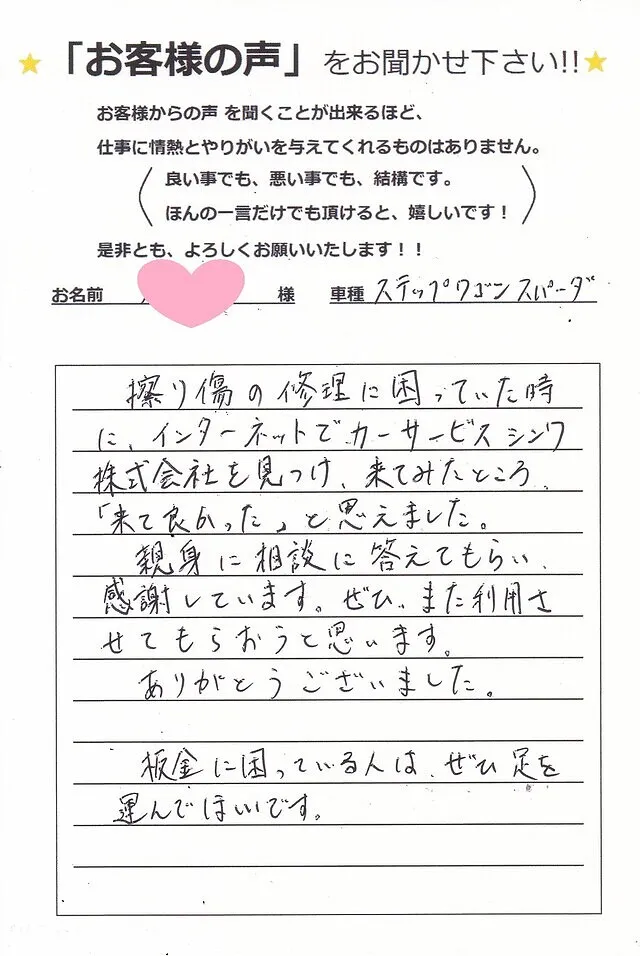 ★「お客様の声」をお聞かせ下さい!!★
お客様からの声 を聞くことが出来るほど、
仕事に情熱とやりがいを与えてくれるものはありません。
(良い事でも、悪い事でも、結構です。
ほんの一言だけでも頂けると、嬉しいです!)
是非とも、よろしくお願いいたします!!
お名前 様 車種 ステップワゴンスパーダ
擦り傷の修理に困っていた時
に、インターネットでカーサービスシンワ
株式会社を見つけ、来てみたところ、
「来て良かった」と思えました。
親身に相談に答えてもらい、
感謝しています。ぜひ、また利用さ
せてもらおうと思います。
ありがとうございました。
板金に困っている人は、ぜひ足を
運んでほしいです。